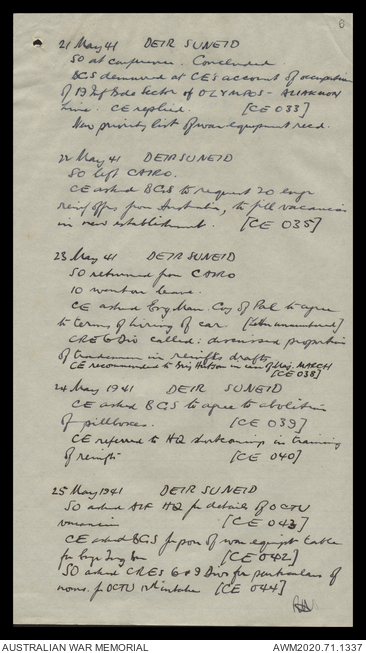 6
21 May 41 DEIR SUNEID
SO at conference. Concluded
BGS demurred at CE's account of occupation
of 19 Inf Bde Sector of OLYMPOS - ALIAKMON
line. CE replied. [CE 033]
New priority list of war equipment recd.
22 May 41 DEIR SUNEID
SO left CAIRO.
CE asked BGS to request 20 engr
reinf offrs from Australia, to fill vacancies
in new establishment. [CE 035]
23 May 41 DEIR SUNEID
SO returned from CAIRO
IO went on leave.
CE asked Eng Man. Coy of Pal to agree
to terms of hiring of car [letter unnumbered]
CRE 6 Div called: discussed proportion
of tradesmen in reinfts drafts
CE recommended to in of Maj. MARCH
[CE 038]
24 May 1941 DEIR SUNEID
CE asked BGS to agree to abolition
of pillboxes. [CE 039]
CE referred to HQ shortcomings in training
of reinfts [CE 040]
25 May 1941 DEIR SUNEID
SO asked AIF HQ for details of OCTU
vacancies [CE 043]
CE asked BGS for of war equipt table
for [CE 042]
SO asked CREs 6 & 9 Divs for particulars of
noms. for OCTU intake [CE 044]
AUSTRALIAN WAR MEMORIAL
AWM2020.71.1337